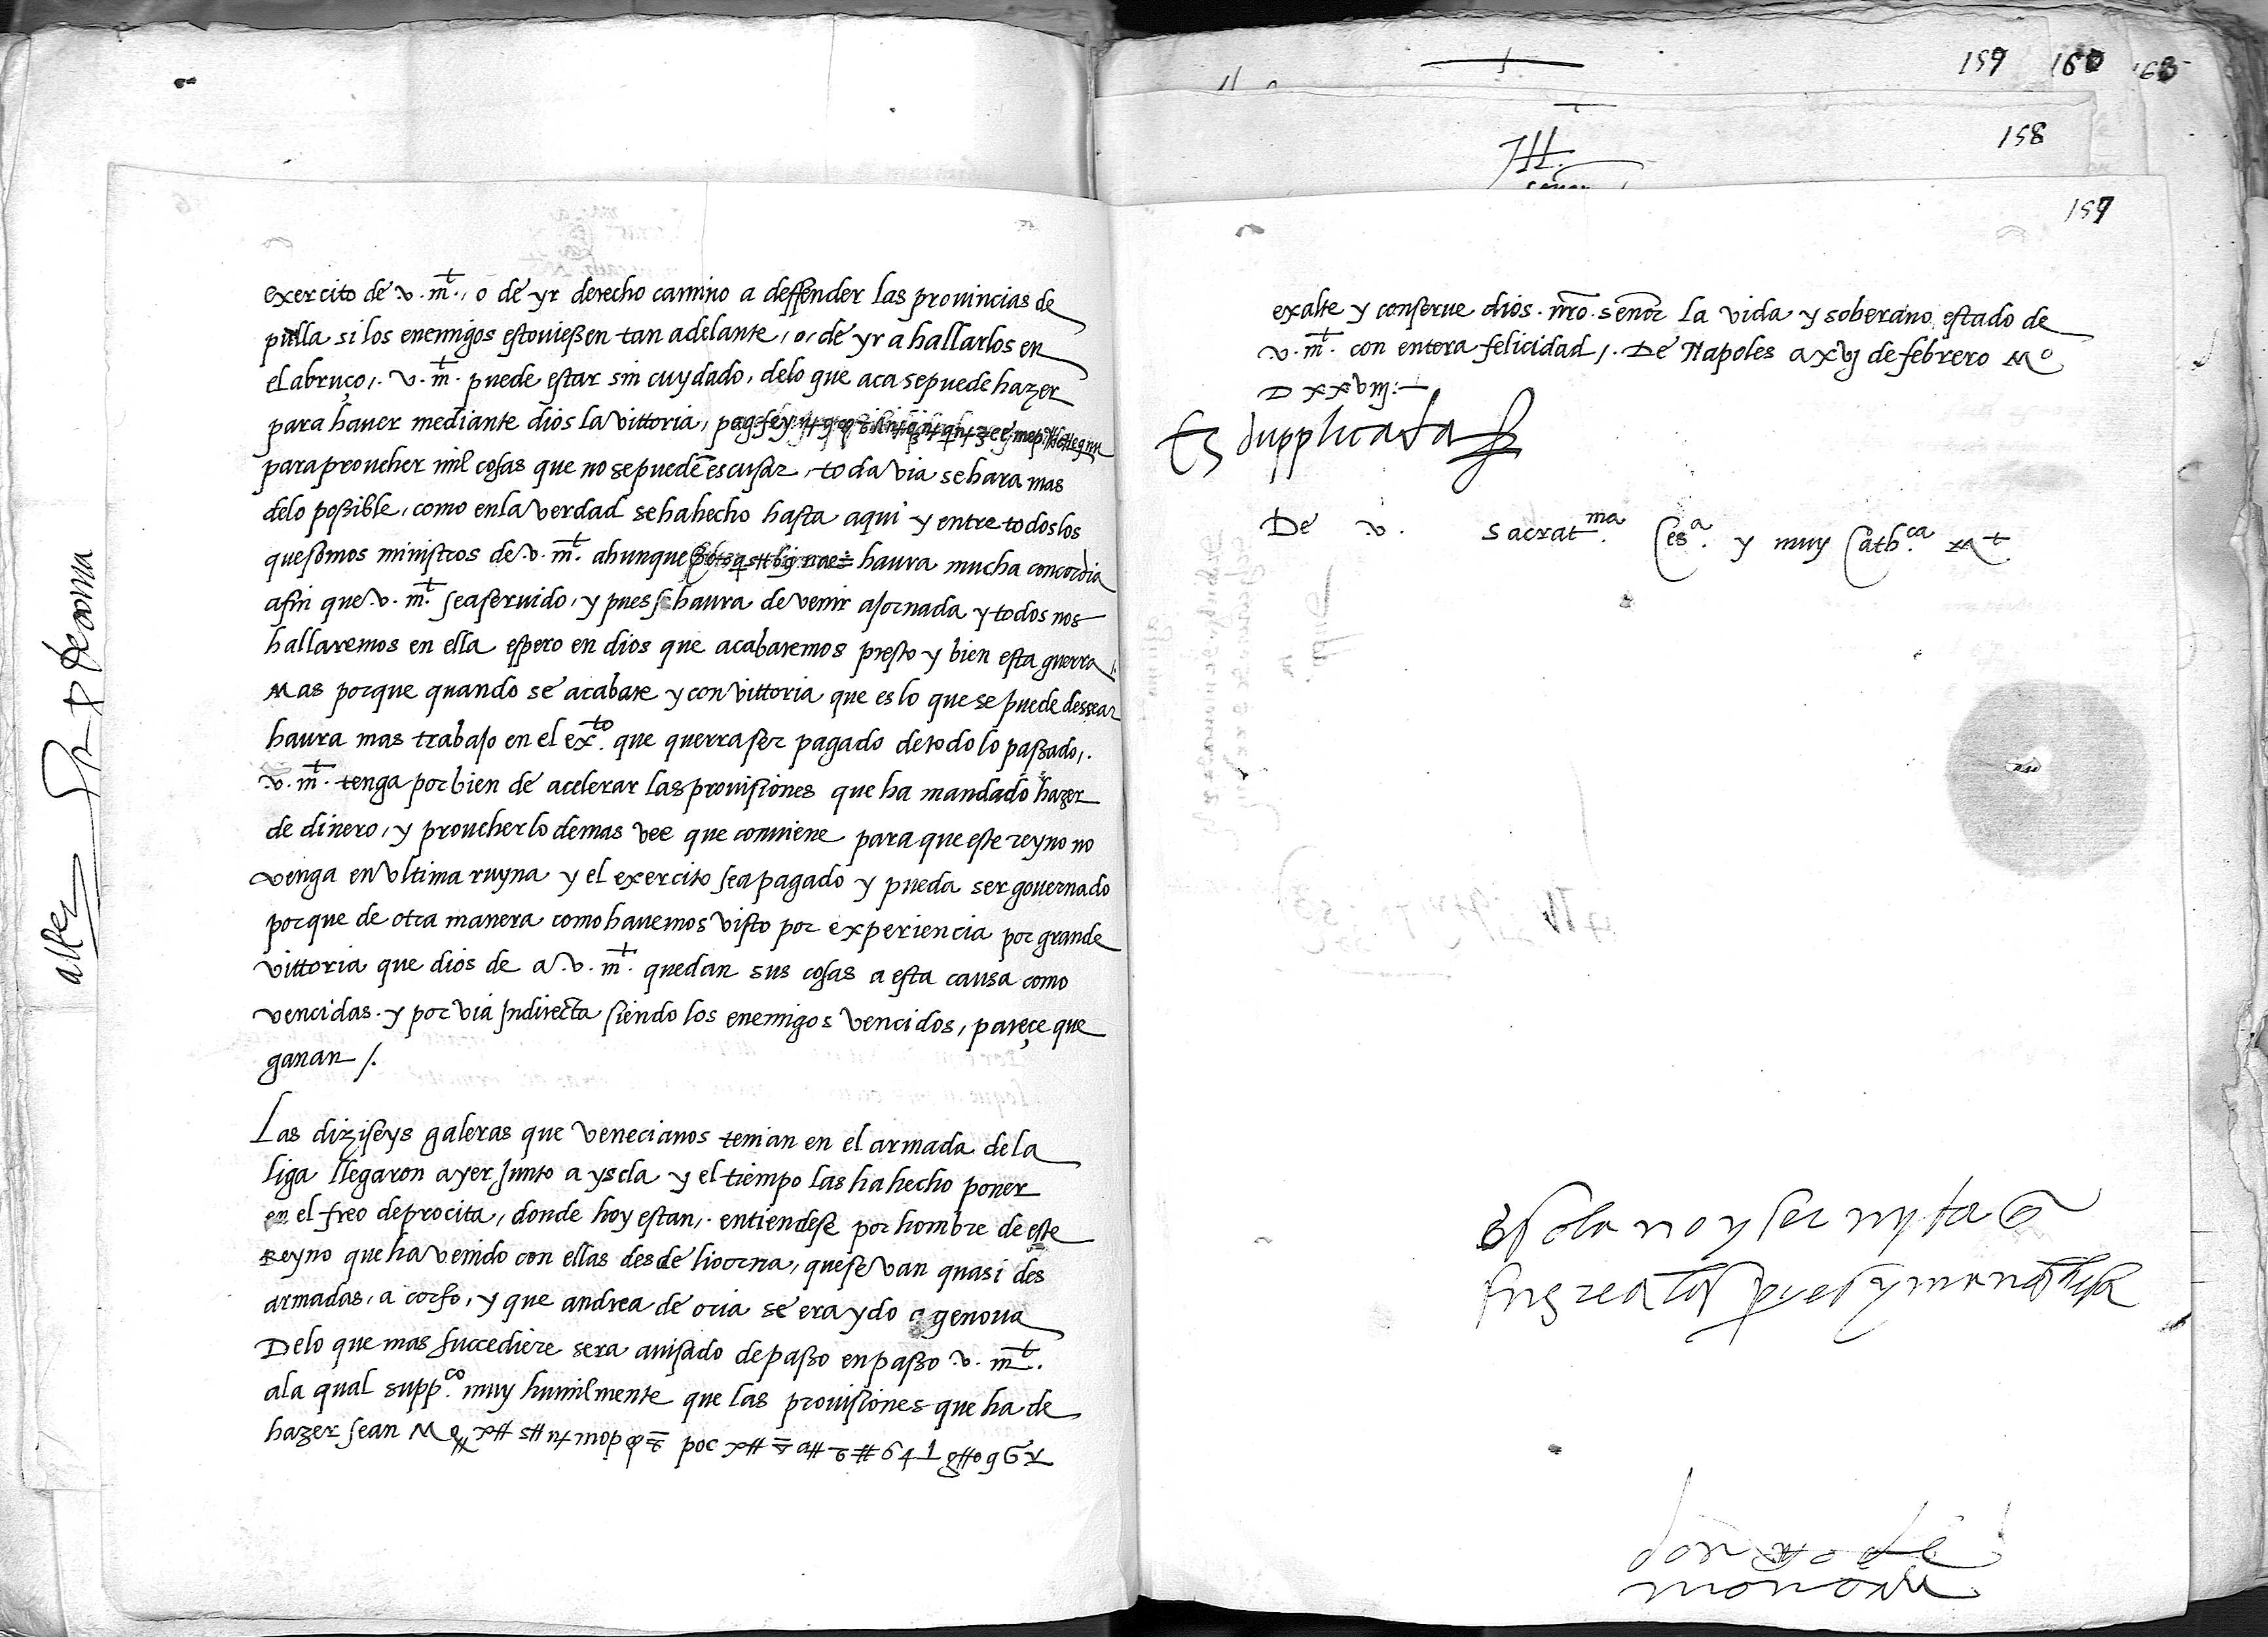 exercito de v. m.t, o de yr derecho camino a deffender las prouincias de
pulla si los enemigos estouiessen tan adelante, o, de yr a hallarlos en
el abruço,. v. m.t puede estar sin cuydado, delo que aca se puede hazer
para hauer mediante dios la vittoria,
para proueher mil cosas que no se pueden escusar, toda via se hara mas
delo possible, como en la verdad se ha hecho hasta aqui y entre todos los
que somos ministros de v. m.t ahunque haura mucha concordia
afin que v. m.t sea seruido, y pues se haura de venir a jornada y todos nos
hallaremos en ella espero en dios que acabaremos presto y bien esta guerra /.
Mas porque quando se acabare y con vittoria que es lo que se puede dessear
haura mas trabajo en el ex.to que querra ser pagado de todo lo passado,.
v. m.t tenga por bien de acelerar las prouisiones que ha mandado hazer
de dinero, y proueher lo demas vee que conuiene para que este reyno no
venga en vltima ruyna y el exercito sea pagado y pueda ser gouernado
porque de otra manera como hauemos visto por experiencia por grande
vittoria que dios de a v. m.t quedan sus cosas a esta causa como
vencidas. y por via Indirecta siendo los enemigos vencidos, pareçe que
ganan /.
Las diziseys galeras que venecianos tenian en el armada de la
liga llegaron ayer Junto a yscla y el tiempo las ha hecho poner
en el freo de procita, donde hoy estan,. entiendese por hombre de este
Reyno que ha venido con ellas desde liorna, que se van quasi des
armadas, a corfo, y que andrea de oria se era ydo a genoua
Delo que mas succediere sera auisado de passo en passo v. m.t
ala qual supp.co muy humilmente que las prouisiones que ha de
hazer sean
159 160
158
159
exalte y conserue dios. nro. señor la vida y soberano estado de
v. m.t con entera felicidad /. De Napoles a xvj de febrero M.o
D xxviij:-
Es dupplicata
De v. Sacrat.ma Ces.a y muy Cath.ca M.t